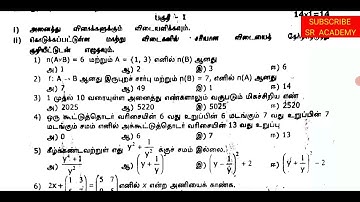 பகுதி - I
14x1=14
SUBSCRIBE
SR ACADEMY
I) அனைத்து வினாக்களுக்கும் விடையளிக்கவும்.
II) கொடுக்கப்பட்டுள்ள மாற்று விடைகளில் சரியான விடையைத்
குறியீட்டுடன் எழுதவும்.
1) n(A×B) = 6 மற்றும் A = {1, 3} எனில் n(B) ஆனது
அ) 1 ஆ) 2 இ) 3 ஈ) 6
2) f: A → B ஆனது இருபுறச் சார்பு மற்றும் n(B) = 7, எனில் n(A) ஆனது
அ) 7 ஆ) 49 இ) 1 ஈ) 14
3) 1 முதல் 10 வரையுள்ள அனைத்து எண்களாலும் வகுபடும் மிகச்சிறிய எண்
அ) 2025 ஆ) 5220 இ) 5025 ஈ) 2520
4) ஒரு கூட்டுத்தொடர் வரிசையின் 6 வது உறுப்பின் 6 மடங்கும் 7 வது உறுப்பின் 7
மடங்கும் சமம் எனில் அக்கூட்டுத்தொடர் வரிசையின் 13 வது உறுப்பு
அ) 0 ஆ) 6 இ) 7 ஈ) 13
5) கீழ்க்கண்டவற்றுள் எது y² + 1/y² க்குச் சமம் இல்லை.
அ) (y⁴+1)/y² ஆ) (y + 1/y)² இ) (y − 1/y)² + 2 ஈ) (y + 1/y)² − 2
6) 2x + எனில் x என்ற அணியைக் காண்க.